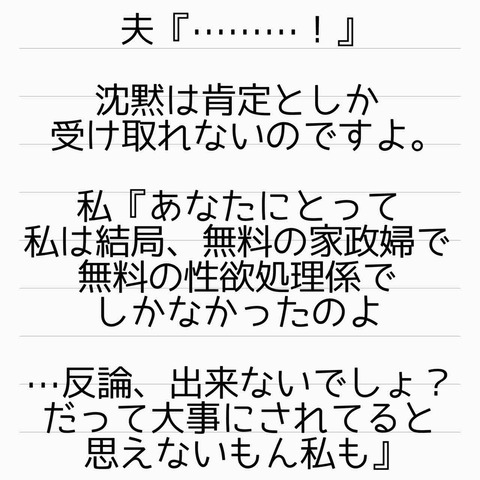 夫『………！』
沈黙は肯定としか
受け取れないのですよ。
私『あなたにとって
私は結局、無料の家政婦で
無料の性欲処理係で
しかなかったのよ
…反論、出来ないでしょ？
だって大事にされてると
思えないもん私も』